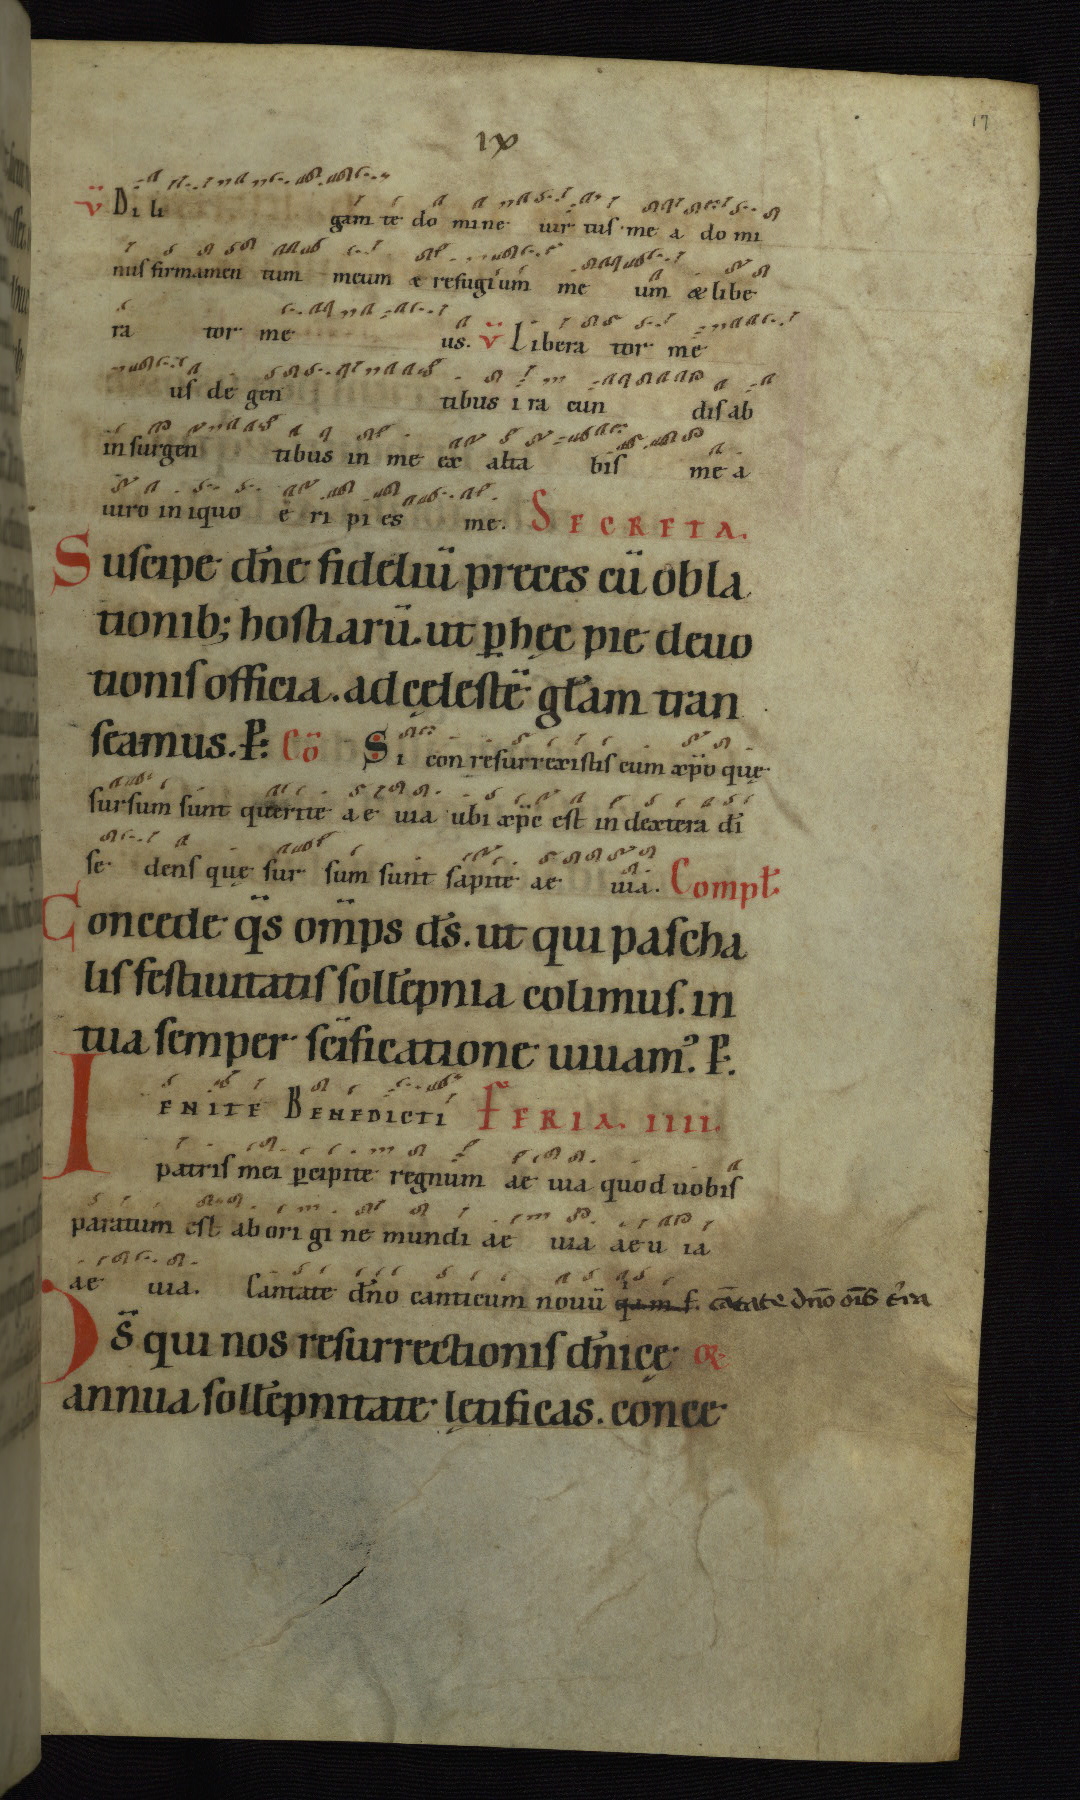 17
IX
v̈ Dili gam te do mine uir tuſ me a do mi
nuſ firmamen tum meum & refugium me um & libe
ra tor me us. v̈ Libera tor me
uſ de gen tibus ira cun diſ ab
inſurgen tibus in me ex alta biſ me a
uiro iniquo e ri pi es me. SECRETA.
Suſcipe dn̄e fideliū preces cū obla
tionib; hoſtiarū. ut ꝑ hęc pie deuo
tioniſ officia. ad cęleſtē gl̄am tran
ſeamus. P̱: Cō Si conreſurrexiſtiſ cum xp̄o quę
ſurſum ſunt querite ae uia ubi xp̄c eſt in dextera dī
ſe denſ quę ſur ſum ſunt ſapite ae uia. Compl̄.
Concede q̄s om̄ps d̄s. ut qui paſcha
liſ feſtiuitatiſ ſoll̄epnia colimuſ. in
tua ſemper ſc̄ificatione uiuam᾽. P̱.
IENITE BENEDICTI FERIA. IIII.
patriſ mei ꝑcipite regnum ae uia quod uobiſ
paratum eſt ab origi ne mundi ae uia ae u ia
ae uia. Cantate dn̄o canticum nouū cātate dn̄o oīs t̄ra
Ds̄ qui nos reſurrectioniſ dn̄icę OR
annua ſoll̄epnitate lętificas. conce